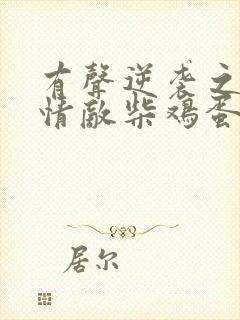 有聲逆袭之
情敵柴鸡蛋
居尔